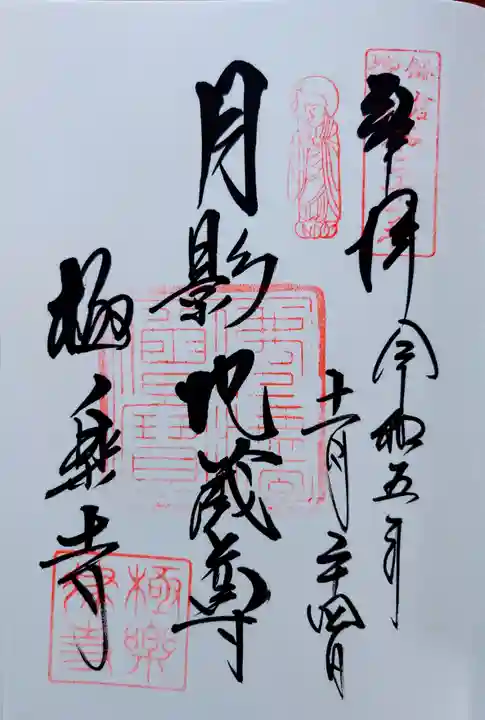 奉拝 令和五年
十一月二十四日
月影地蔵尊
極楽寺
極樂